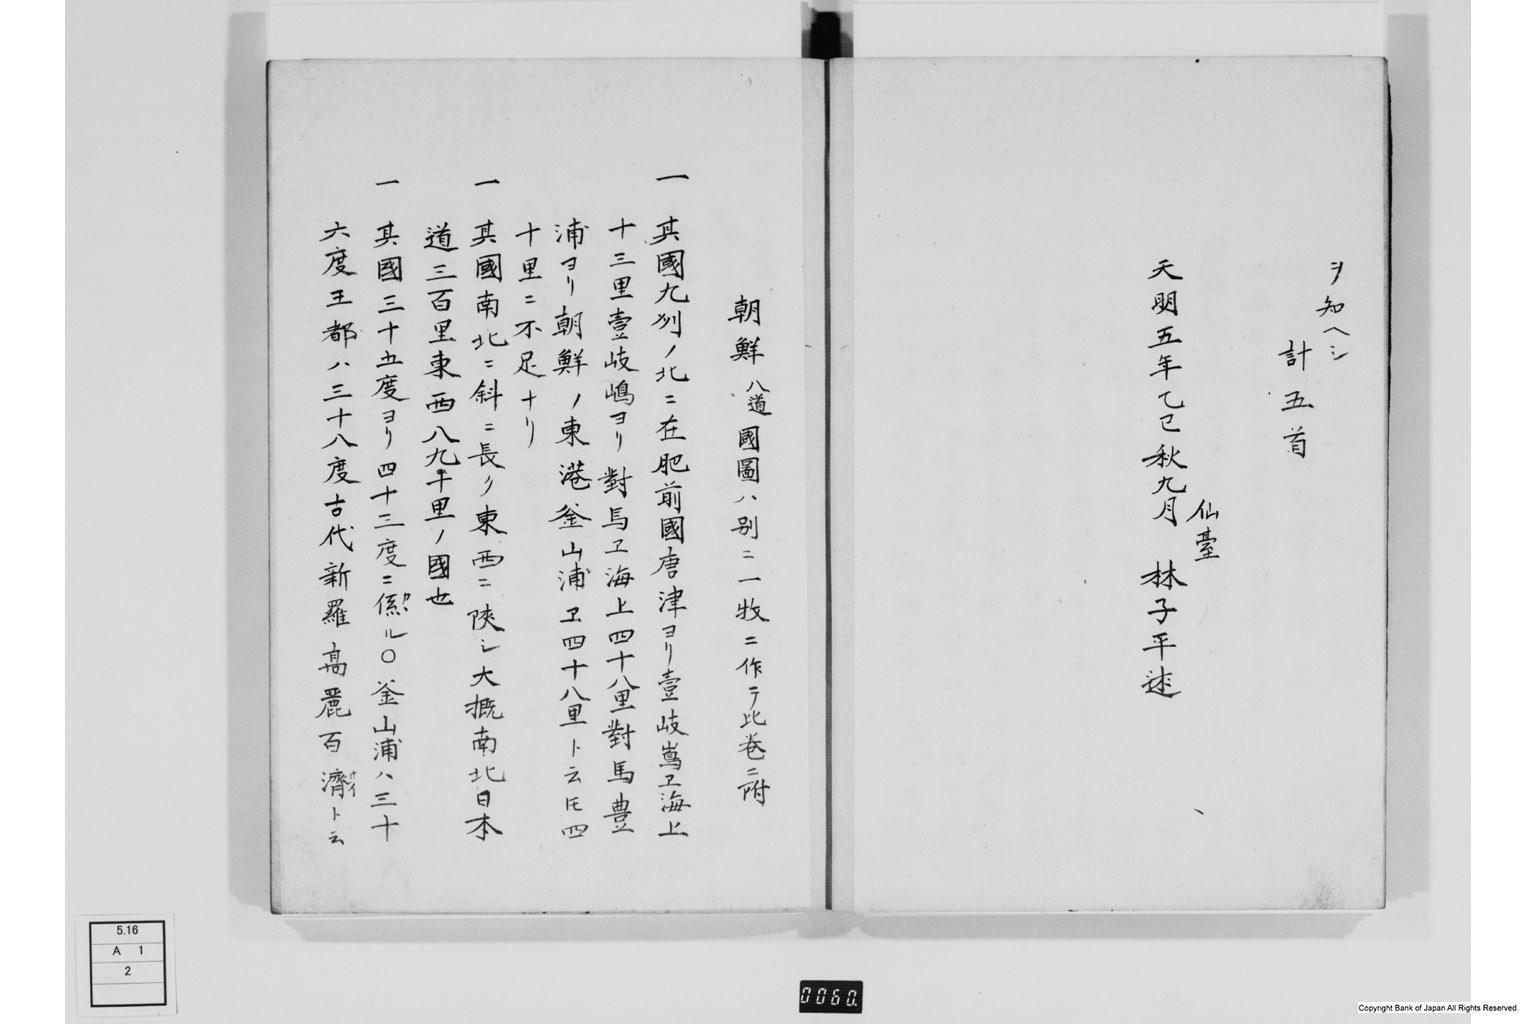 ヲ知ヘシ
計五首
天明五年乙巳秋九月 仙臺 林子平述
朝鮮 八道 國圖ハ別ニ一牧ニ作テ此卷ニ附
一 其國九州ノ北ニ在肥前國唐津ヨリ壹岐嶌ヱ海上
十三里壹岐嶋ヨリ對馬ヱ海上四十八里對馬豊
浦ヨリ朝鮮ノ東港釜山浦ヱ四十八里ト云ヒ四
十里ニ不足ナリ
一 其國南北ニ斜ニ長ク東西ニ陜シ大概南北日本
道三百里東西八九十里ノ國也
一 其國三十五度ヨリ四十三度ニ係ルカヽ〇釜山浦ハ三十
六度王都ハ三十八度古代新羅高麗百濟サイト云
5.16
A 1
2
0060.
Copyright Bank of Japan All Rights Reserved.